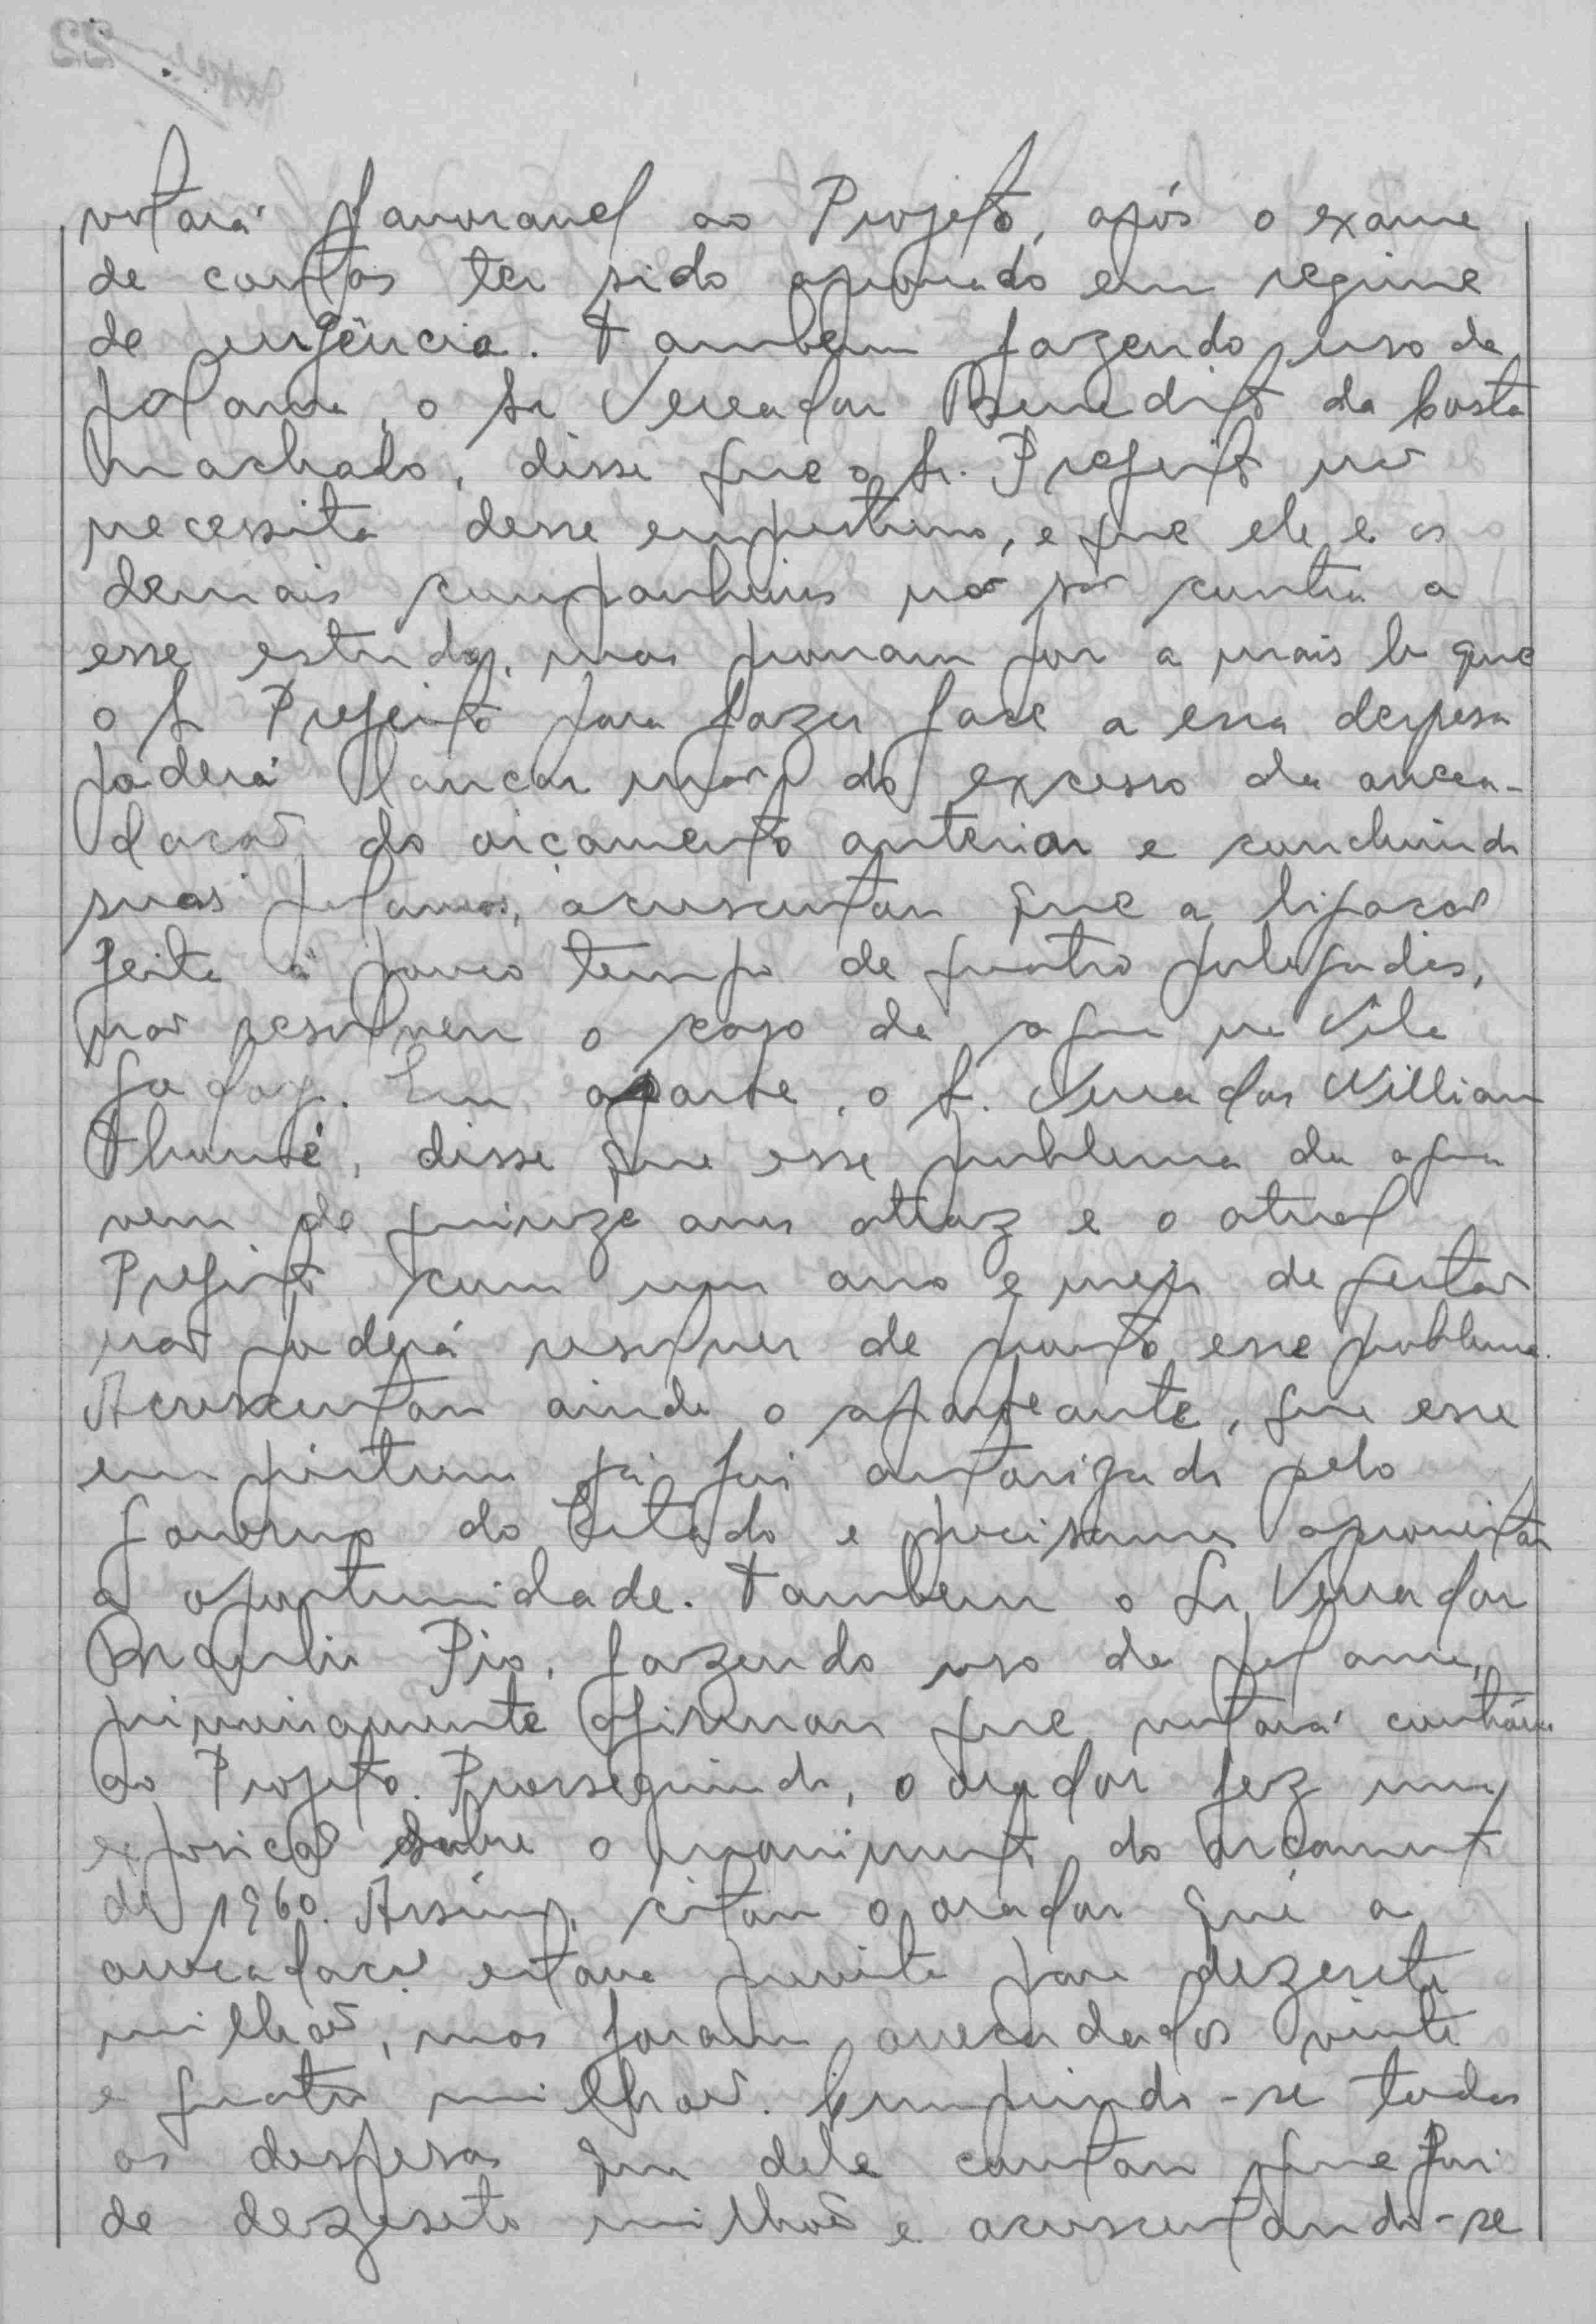 votará favoravel ao Projeto, após o exame
de contas ter sido aprovado em regime
de urgência. Tambem fazendo uso da
palavra, o Sr Vereador Benedito da Costa
Machado, disse que o Sr. Prefeito não
necessita desse emprestimo, e que ele e os
demais companheiros não são contra a
esse estudo, mas provam por a mais b que
o Sr Prefeito para fazer face a essa despesa
poderá lançar mão do excesso da arreca-
dação do orçamento anterior e concluindo
suas palavras, acrescentou que a ligação
feita a pouco tempo de quatro polegadas,
não resolveu o caso da agua na Vila
Godoy. Em aparte, o Sr. Vereador Willian
Thomé, disse que esse problema da agua
vem de quinze anos atraz e o atual
Prefeito com um ano e meio de gestão
não poderá resolver de pronto esse problema.
Acrescentou ainda o aparteante, que esse
emprestimo já foi autorizado pelo
Governo do Estado e precisamos aproveitar
a oportunidade. Tambem o Sr Vereador
Braulio Pio, fazendo uso da palavra,
primeiramente afirmou que votará contrário
ao Projeto. Prosseguindo, o orador fez uma
exposição sobre o movimento do orçamento
de 1960. Assim, citou o orador que a
arrecadação estava prevista para dezesete
milhões, mas foram arrecadados vinte
e quatro milhões. Cumprindo-se todas
as despesas que dele constam que foi
de dezesete milhões e acrescentando-se